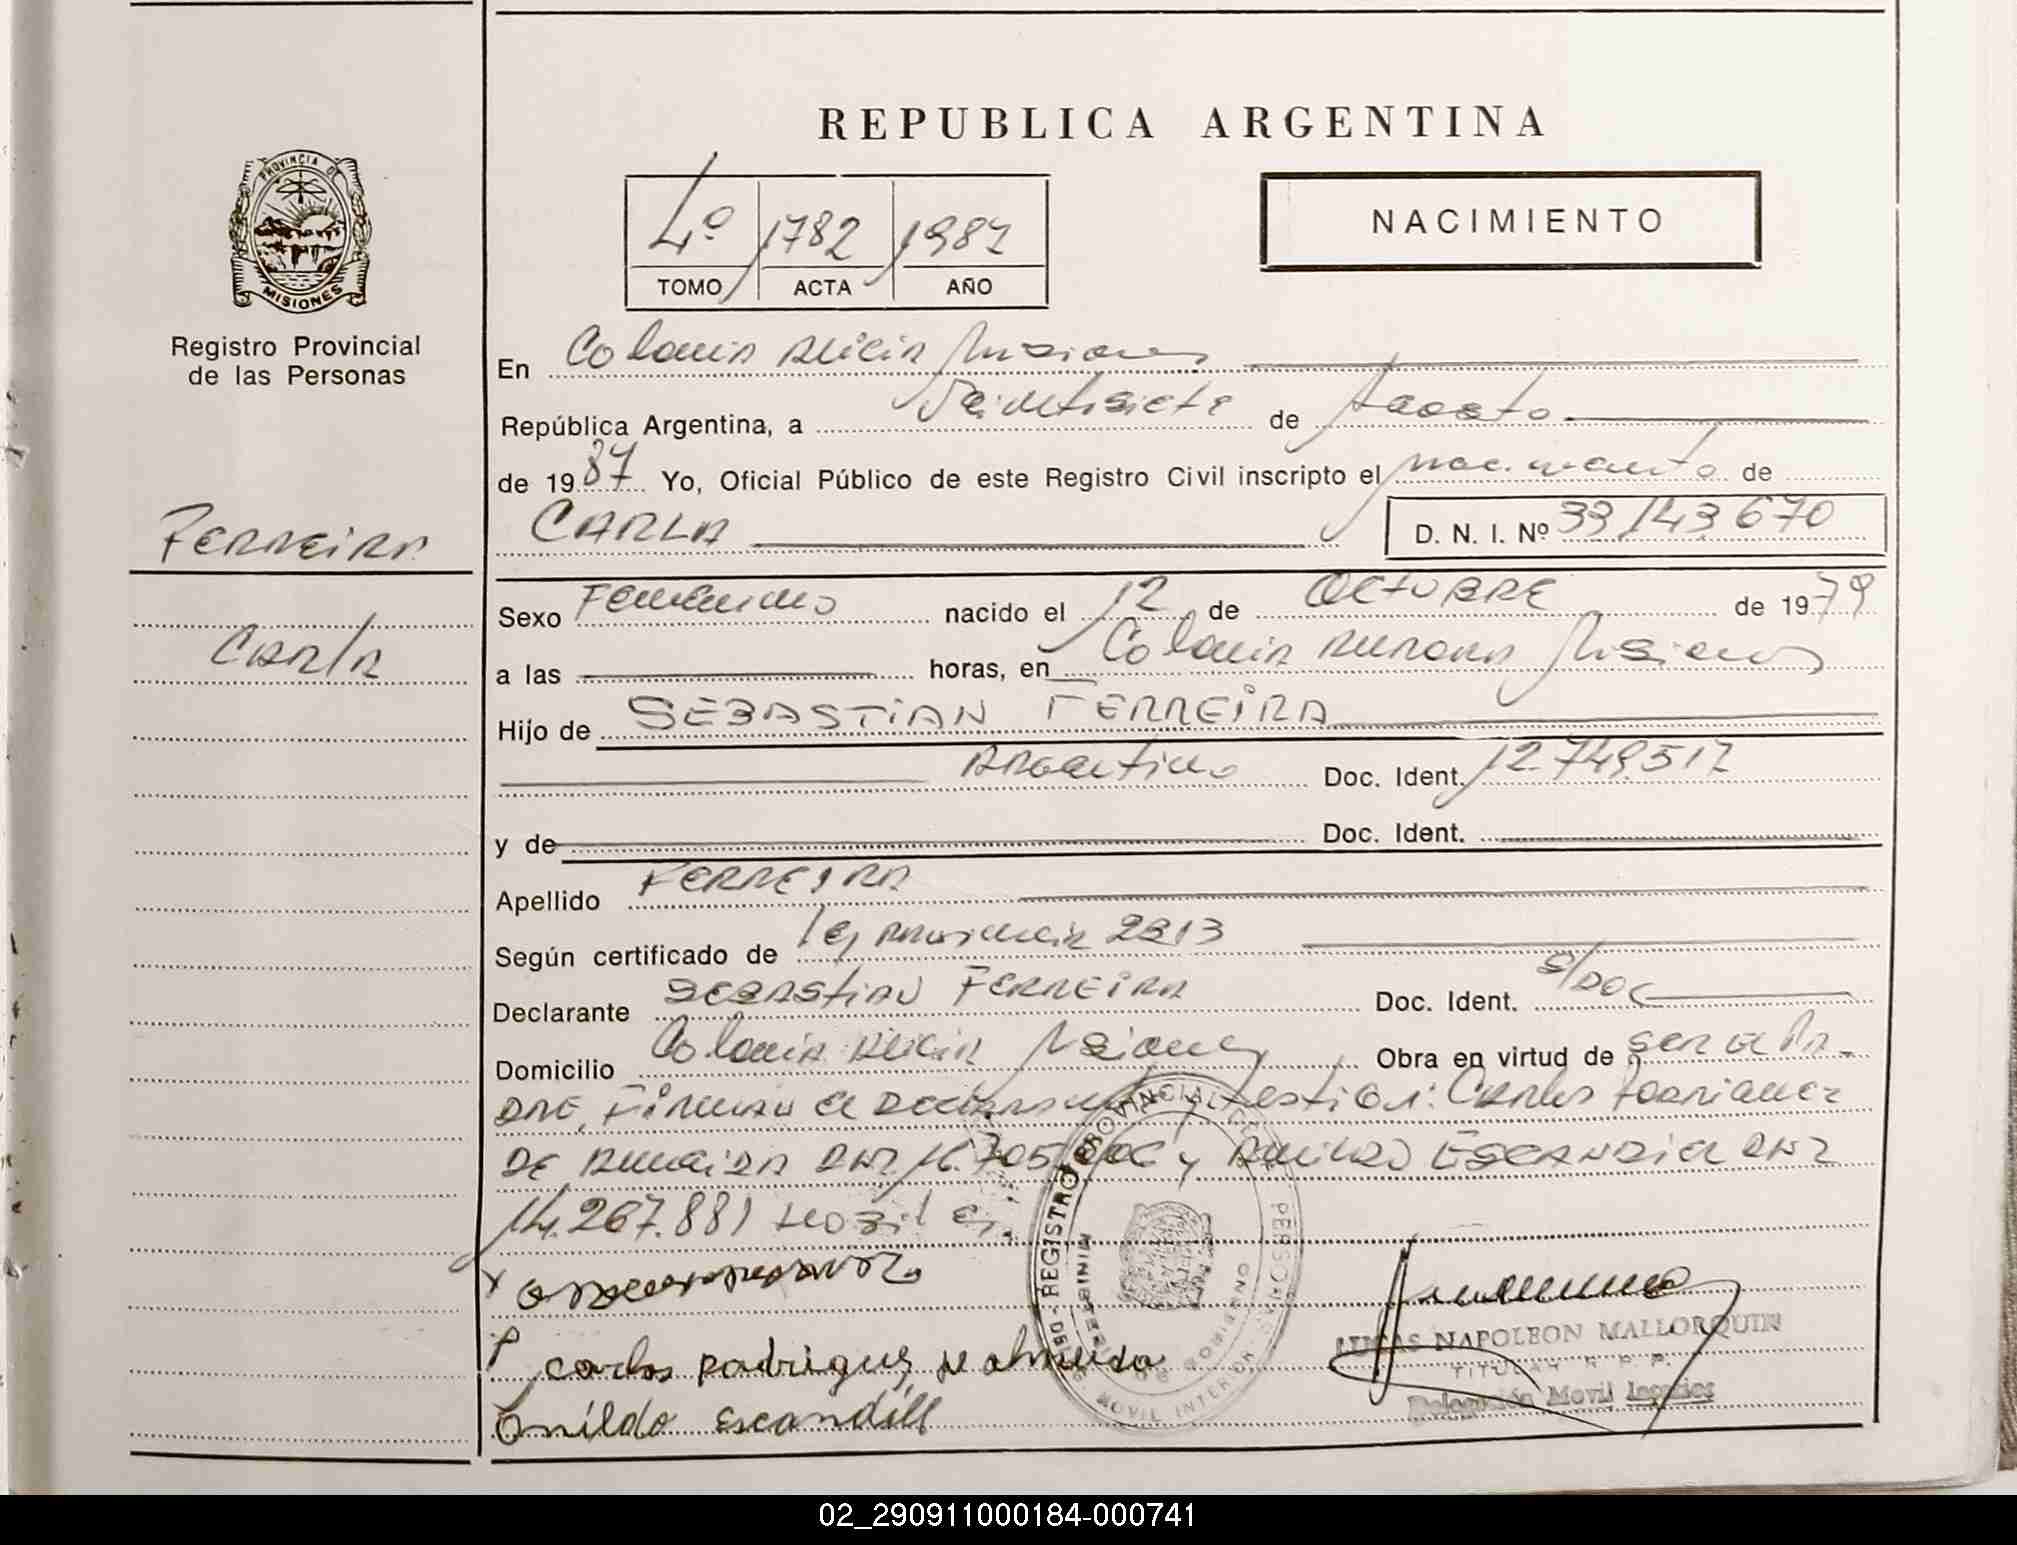 REPUBLICA ARGENTINA
PROVINCIA DE
MISIONES
Registro Provincial
de las Personas
4º 1782 1987
TOMO ACTA AÑO
NACIMIENTO
En Colonia Alicia Misiones
República Argentina, a Veintisiete de Agosto
de 1987 Yo, Oficial Público de este Registro Civil inscripto el nacimiento de
CARLA D. N. I. Nº 33.143.670
Ferreira
Carla
Sexo Femenino nacido el 12 de OCTUBRE de 1979
a las horas, en Colonia Aurora Misiones
Hijo de SEBASTIAN FERREIRA
Argentino Doc. Ident. 12.749.517
y de Doc. Ident.
Apellido FERREIRA
Según certificado de ley Provincia 2313
Declarante SEBASTIAN FERREIRA Doc. Ident. S/DOC
Domicilio Colonia Alicia Misiones Obra en virtud de ser el Pa-
DRE, Firman el Declarante y testigos: Carlos Rodriguez
DE Almeida DNI 16.705 y ESCANDIEL DNI
14.267.881
carlos Rodrigues de almeida
Onildo escandiel
REGISTRO PROVINCIAL DE PERSONAS
MINISTERIO DE GOBIERNO
MOVIL INTERIOR
LUCAS NAPOLEON MALLORQUIN
TITULAR R. P. P.
Delegación Movil
02_290911000184-000741